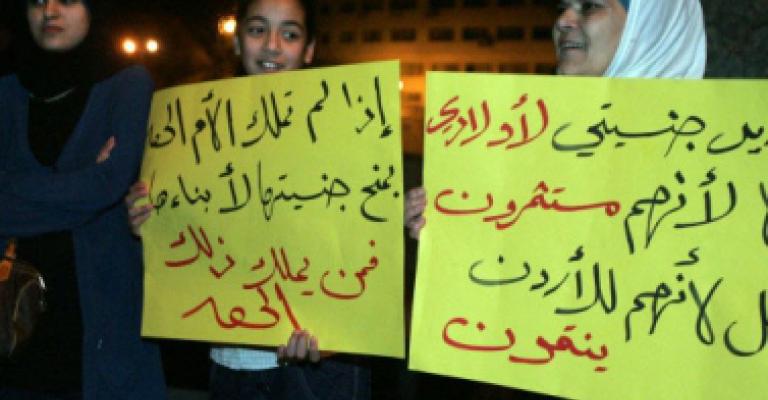 إذا لم تملك الأم الحق
بمنح جنسيتها لأبناءها
فمن يملك ذلك
الحق
يد جنسيتي لأولادي
لا لأنهم مستثمرون
بل لأنهم للأردن
ينتمون